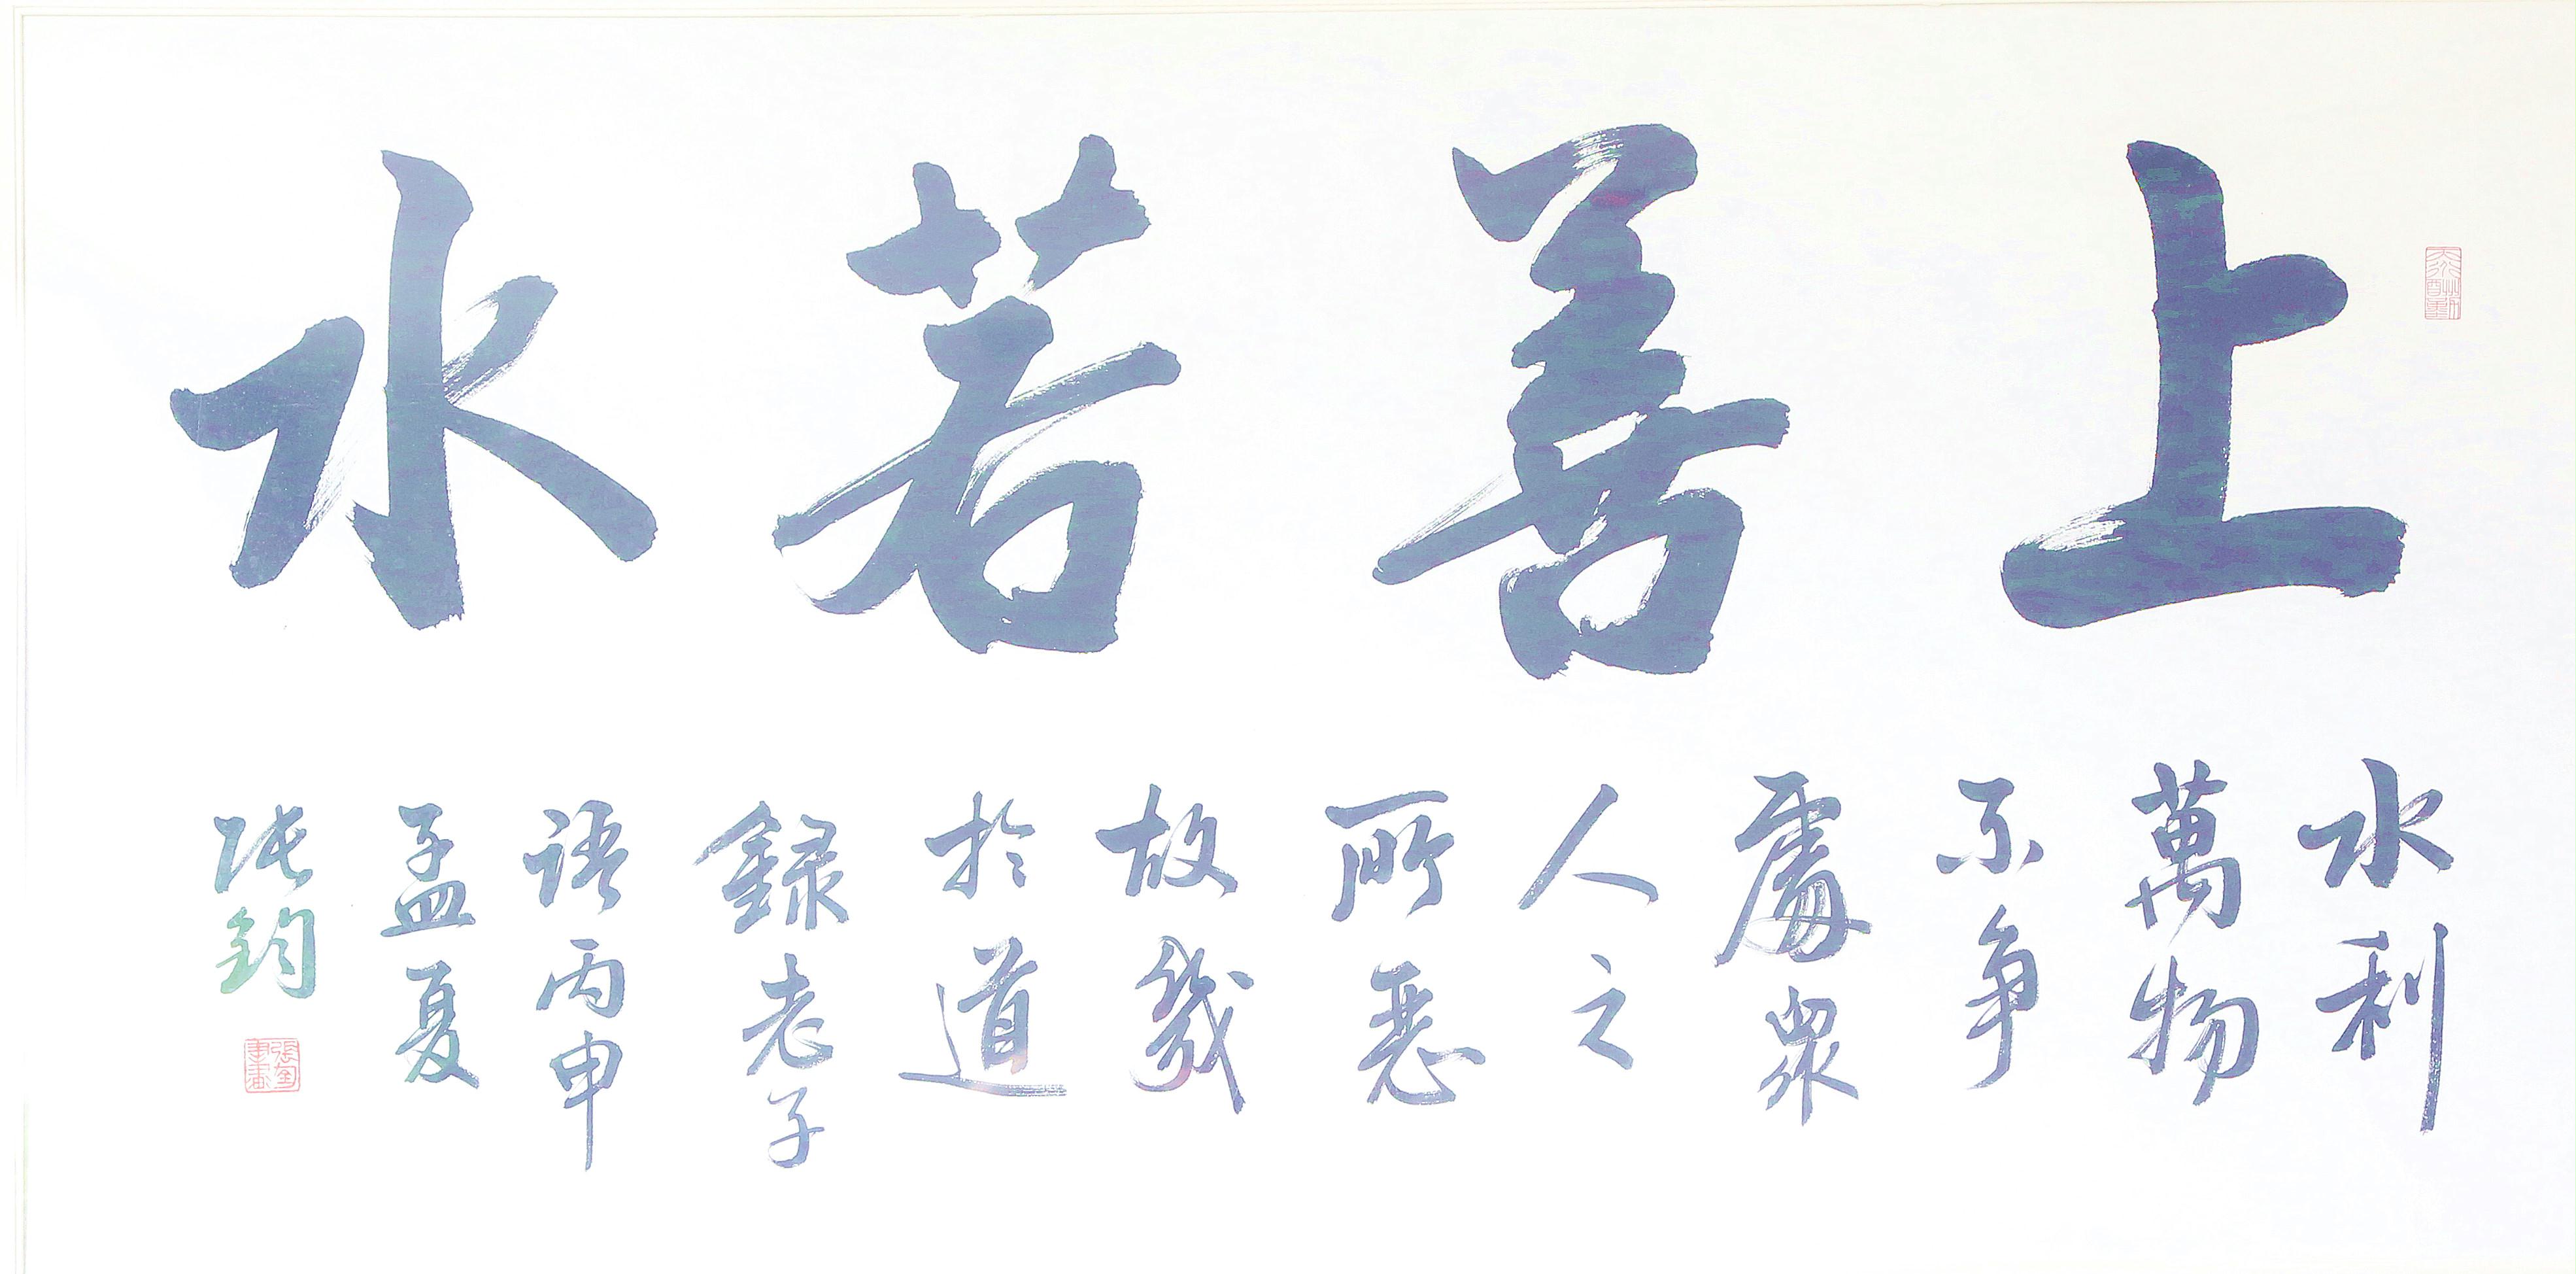 上善若水
水利
萬物
不争
處眾
人之
所惡
故幾
於道
録老子
語丙申
孟夏
张鈞